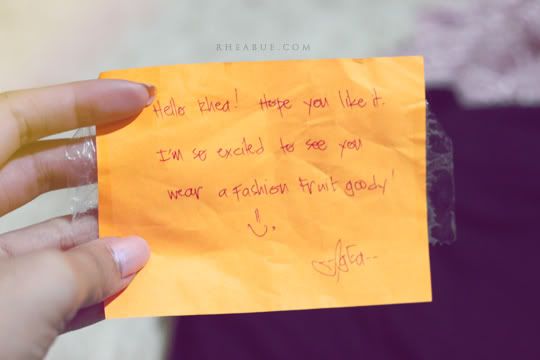 RHEABUE.COM
Hello Rhea! Hope you like it.
I'm so excited to see you
wear a Fashion Fruit goody!